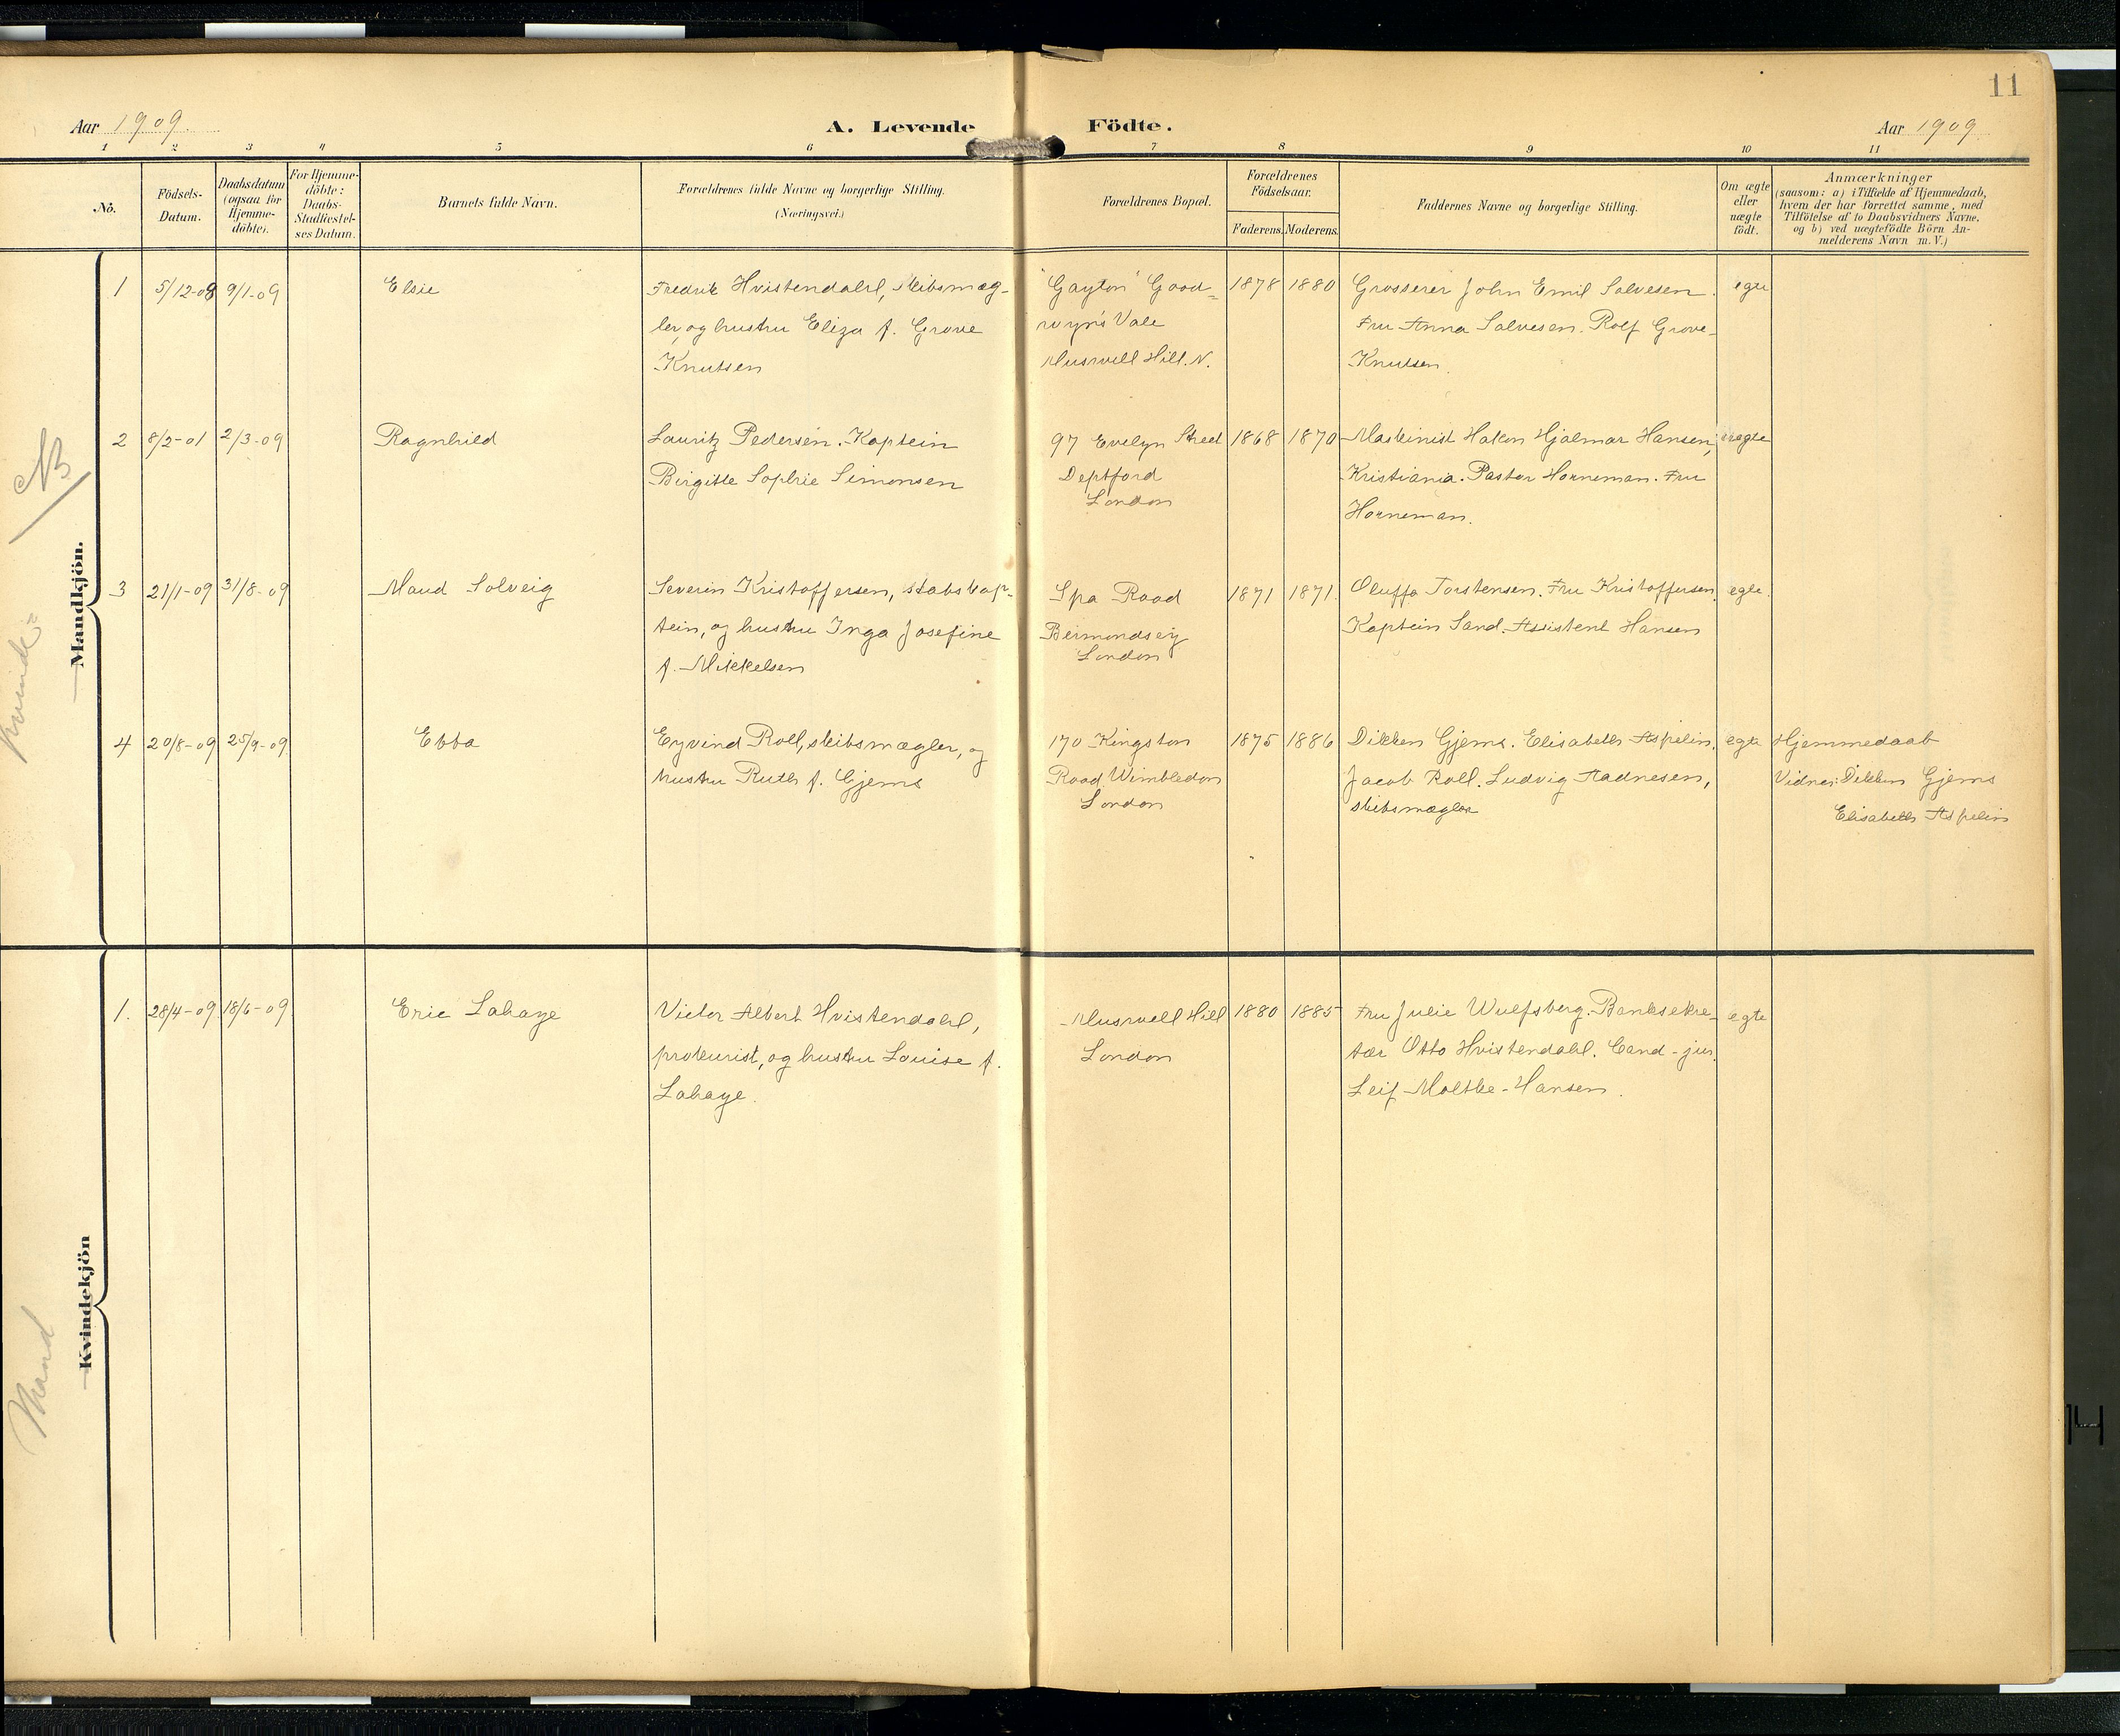 11
Aar 1909.
A. Levende Födte.
Aar 1909
1 2 3 4 5 6 7 8 9 10 11
No.
Födsels-Datum.
Daabsdatum (ogsaa for Hjemme-döbte).
For Hjemme-döbte: Daabs-Stadfæstel-ses Datum.
Barnets fulde Navn.
Forældrenes fulde Navne og borgerlige Stilling.
(Næringsvei.)
Forældrenes Bopæl.
Forældrenes Födselsaar.
Faderens. Moderens.
Faddernes Navne og borgerlige Stilling.
Om ægte eller uægte födt.
Anmærkninger
(saasom: a) i Tilfælde af Hjemmedaab,
hvem der har forrettet samme, med
Tilföielse af to Daabsvidners Navne,
og b) ved uægtefödte Börn An-
melderens Navn m. V.)
NB
Mandkjön.
Kvinde=
1 5/12-08 9/1-09 Elsie
Fredrik Hvistendahl, skibsmæg-
ler, og hustru Eliza f. Grove
Knutsen
"Gayton" Good-
wyn's Vale
Muswell Hill. N.
1878 1880
Grosserer John Emil Salvesen.
Fru Anna Salvesen. Rolf Grove-
Knutsen.
egte
2 8/2-01 2/3-09 Ragnhild
Lauritz Pedersen. Kaptein
Birgitte Sophie Simonsen
97 Evelyn Street
Deptford
London
1868 1870
Maskinist Hakon Hjalmar Hansen,
Kristiania. Pastor Horneman. Fru
Horneman.
uegte
3 21/1-09 31/8-09 Maud Solveig
Severin Kristoffersen, stabskap-
tein, og hustru Inga Josefine
f. Mikkelsen
Spa Road
Bermondsey
London
1871 1871.
Oluffa Torstensen. Fru Kristoffersen.
Kaptein Sand. Assistent Hansen
egte.
4 20/8-09 25/9-09 Ebba
Eyvind Roll, skibsmægler, og
hustru Ruth f. Gjems
170 Kingston
Road Wimbledon
London
1875 1886
Dikken Gjems. Elisabeth Aspelin.
Jacob Roll. Ludvig Aadnesen,
skibsmægler
egte
Hjemmedaab
Vidner: Dikken Gjems
Elisabeth Aspelin
Kvindekjön
Mand
1. 28/4-09 18/6-09 Eric Lahaye
Victor Albert Hvistendahl,
prokurist, og hustru Louise f.
Lahaye.
Muswell Hill
London
1880 1885
Fru Julie Wulfsberg. Banksekre-
tær Otto Hvistendahl. Cand-jur.
Leif Moltke-Hansen.
egte